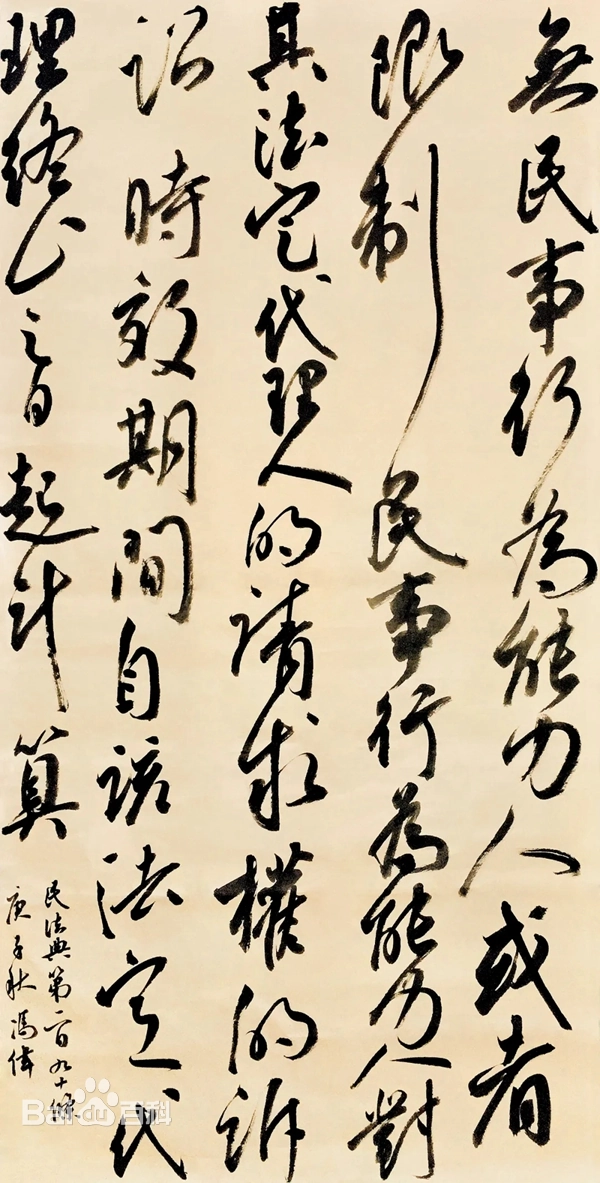 無民事行為能力人或者
限制民事行為能力人對
其法定代理人的請求權的訴
訟時效期間自該法定代
理終止之日起計算
民法典第一百九十條
庚子秋馮偉
Baidu百科